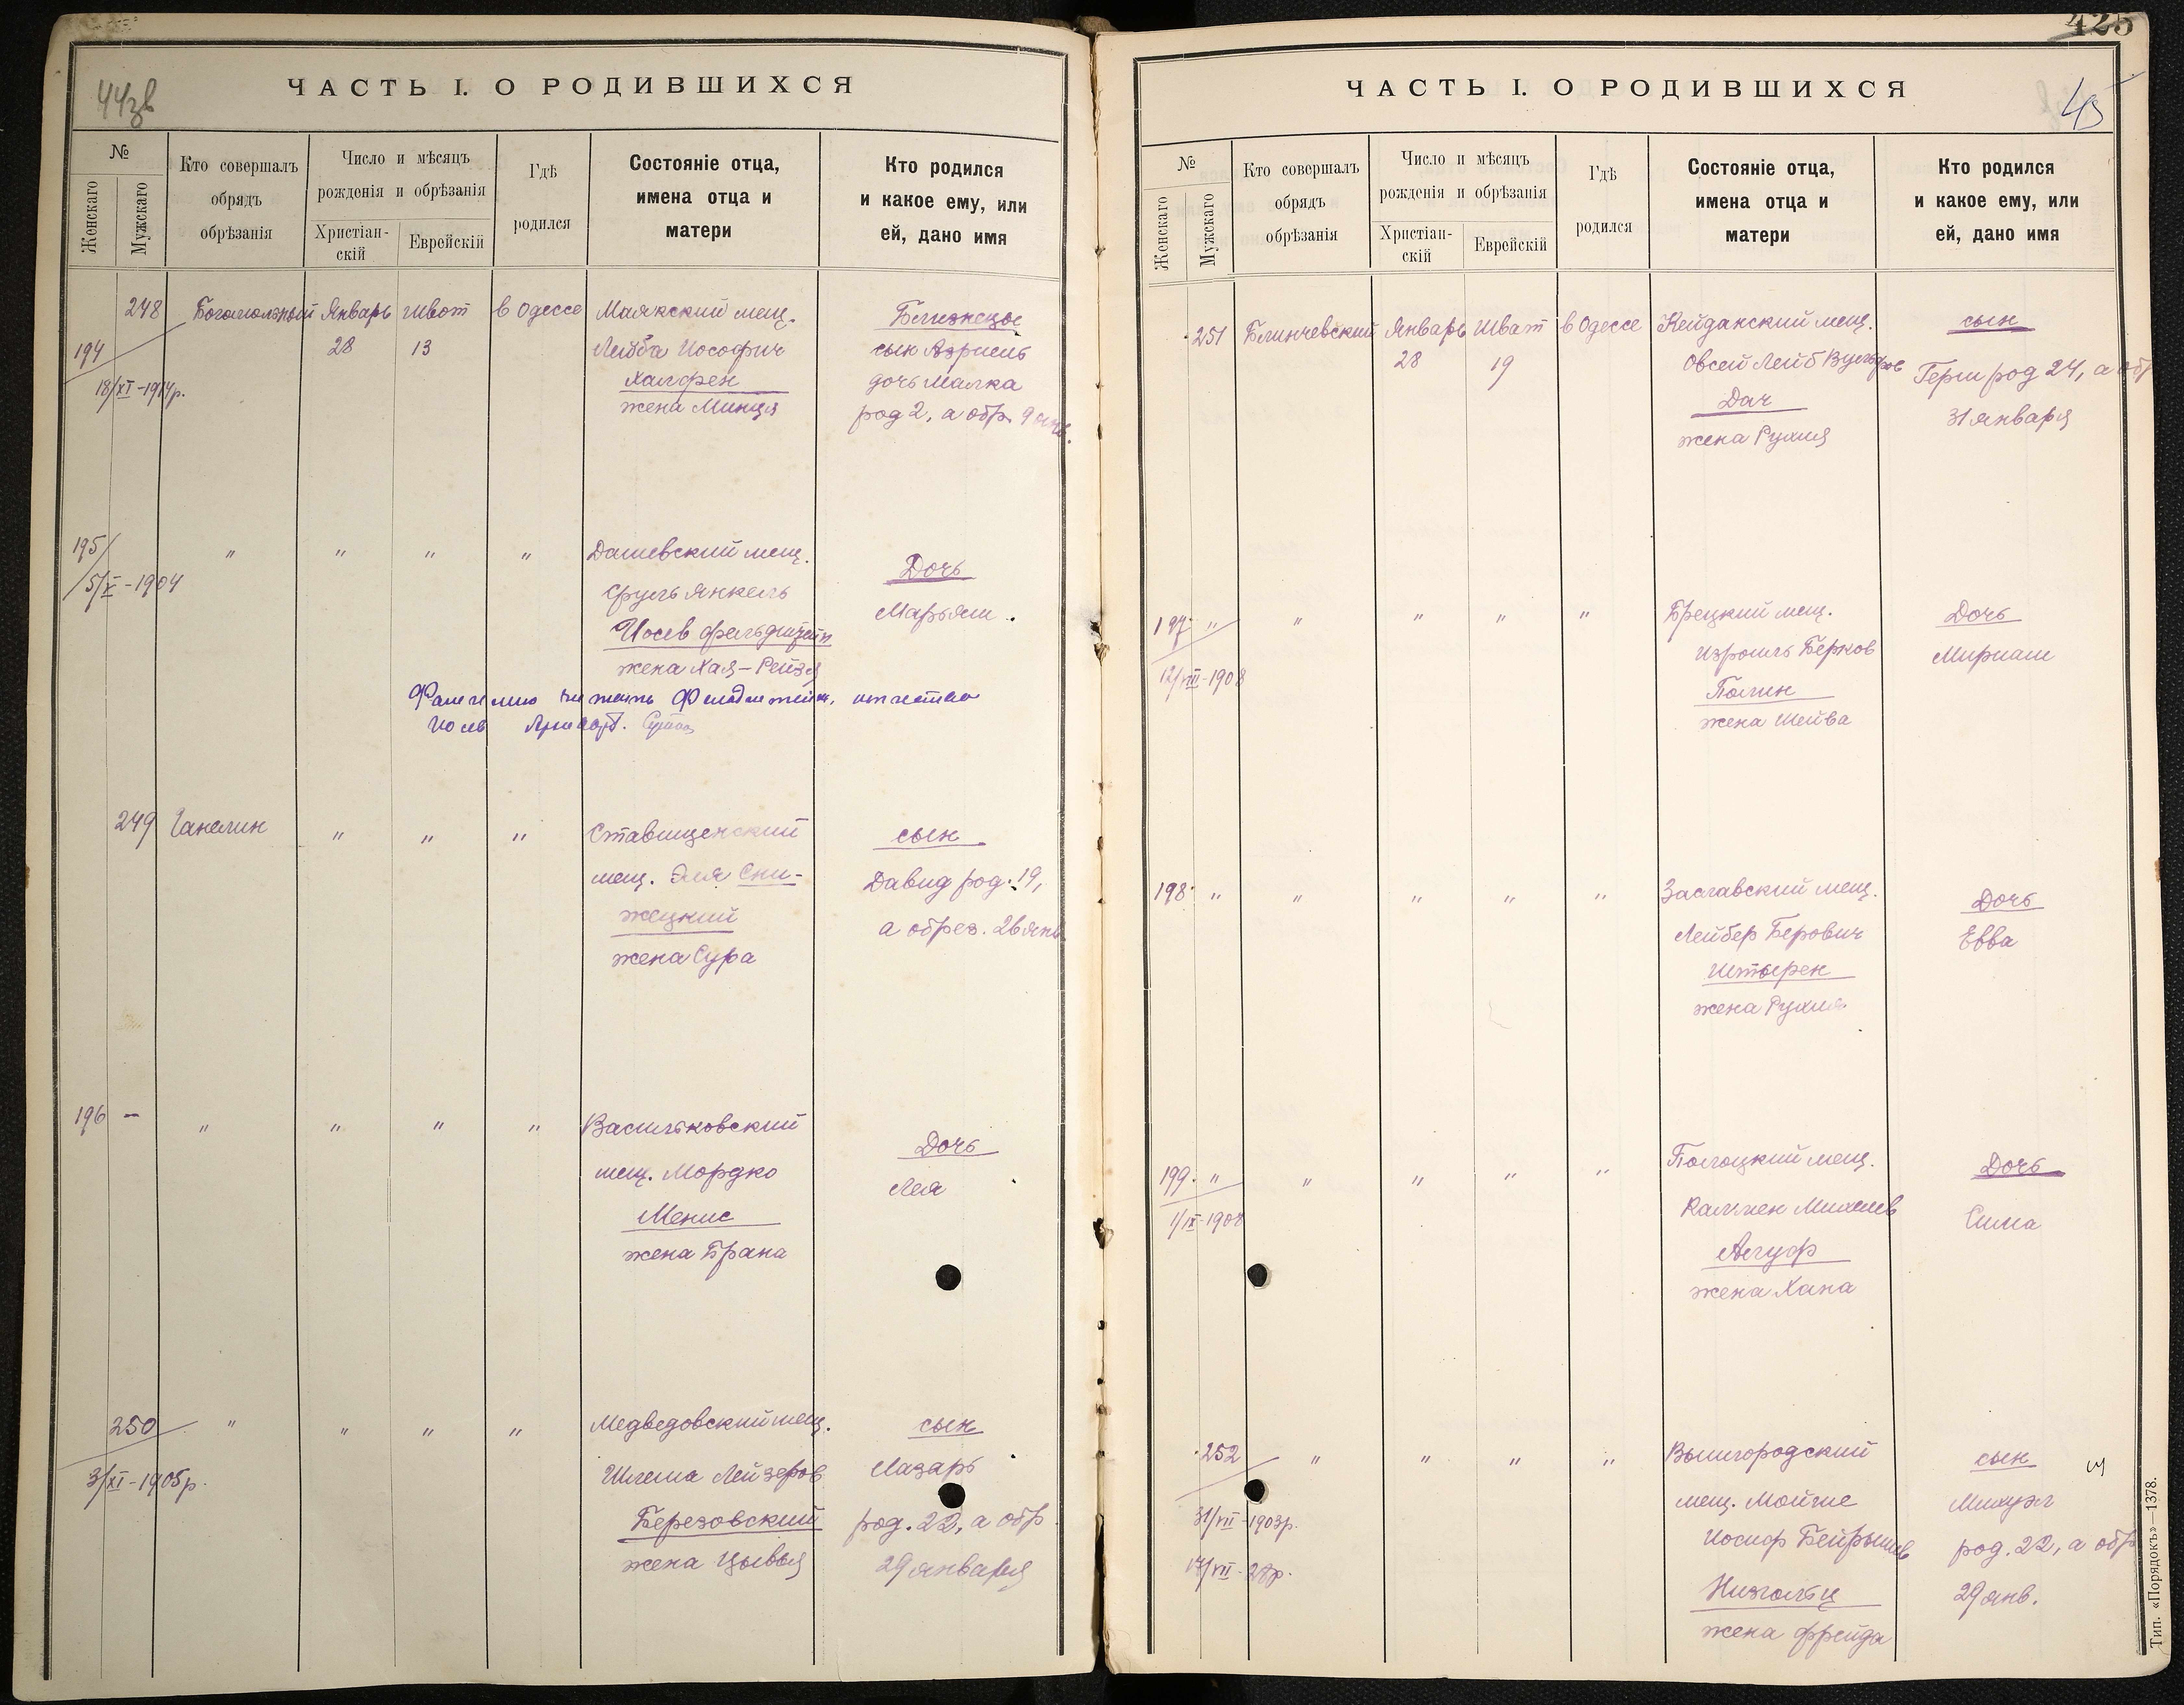 44зв
ЧАСТЬ I. О РОДИВШИХСЯ
№
Женскаго
Мужскаго
Кто совершалъ
обрядъ
обрѣзанія
Число и мѣсяцъ
рожденія и обрѣзанія
Христіан-
скій
Еврейскій
Гдѣ
родился
Состояніе отца,
имена отца и
матери
Кто родился
и какое ему, или
ей, дано имя
248 Богомольный Январь Шват в Одессе Маякский мещ. Близнецы
194 28 13 Лейба Иософич сын Азриель
18/XI-1914р. Халфен дочь Малка
жена Минця род 2, а обр. 9 янв.
195 " " " " Дашевский мещ. Дочь
5/X-1904 Сруль Янкель Марьям
Иосев Фельдштейн
жена Хая-Рейзя
249 Ганелин " " " Ставищенский сын
мещ. Эля Сни- Давид род. 19,
жецкий а обрез. 26 янв.
жена Сура
196 - " " " " Васильковский Дочь
мещ. Мордко Лея
Менис
жена Брана
250 " " " " Медведовский мещ. сын
3/XI-1905р. Шлема Лейзеров Лазарь
Березовский род. 22, а обр
жена Цывья 29 января
425
45
ЧАСТЬ I. О РОДИВШИХСЯ
№
Женскаго
Мужскаго
Кто совершалъ
обрядъ
обрѣзанія
Число и мѣсяцъ
рожденія и обрѣзанія
Христіан-
скій
Еврейскій
Гдѣ
родился
Состояніе отца,
имена отца и
матери
Кто родился
и какое ему, или
ей, дано имя
251 Блинчевский Январь Шват в Одессе Кейданский мещ. сын
28 19 Овсей Лейб Вульфов Герш род 24, а обр
Дач 31 января
жена Рухля
197 " " " " " Брецкий мещ. Дочь
12/VIII-1908 Израиль Берков Мириам
Полин
жена Шейва
198 " " " " " Заславский мещ. Дочь
Лейбер Берович Евва
Штырен
жена Рухля
199 " " " " " Полоцкий мещ. Дочь
1/IX-1908 Калмен Михелев Сима
жена Хана
252 " " " " Вышгородский сын
31/VII-1903р. мещ. Мойше Михуэл
Иосиф Бейрышев род. 22, а обр
29 янв.
жена Фрейда
Тип. «Порядокъ»—1378.